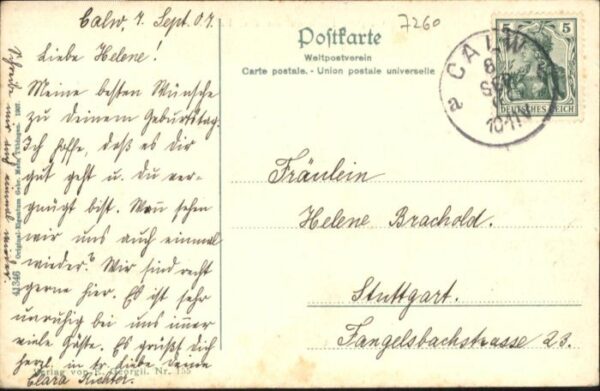 Calw, 7. Sept. 07.
Liebe Helene!
Meine besten Wünsche
zu Deinem Geburtstag.
Ich hoffe, daß es Dir
gut geht u. Du ver-
gnügt bist. Wann sehen
wir uns auch einmal
wieder? Wir sind recht
gerne hier. Es ist sehr
unruhig bei uns immer
viele Gäste. Es grüßt Dich
herzl. in tr. Liebe Deine
Clara Richter.
Schreibe mir auch einmal wieder.
41346 Original-Eigentum Gebr. Metz, Tübingen. 1907.
Verlag von E. Georgii. Nr. 155
7260
Postkarte
Weltpostverein
Carte postale. - Union postale universelle
5 5
DEUTSCHES REICH
CALW
SEP.
a
Fräulein
Helene Brachold.
Stuttgart.
Tangelsbachstrasse 23.